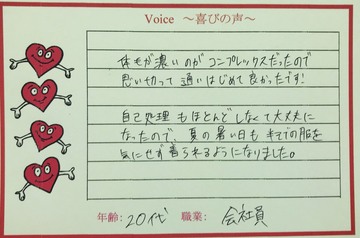 Voice ～喜びの声～
体毛が濃いのがコンプレックスだったので
思い切って通いはじめて良かったです!
自己処理もほとんどしなくて大丈夫に
なったので、夏の暑い日も キャミの服を
気にせず着られるようになりました。
年齢: 20代 職業: 会社員